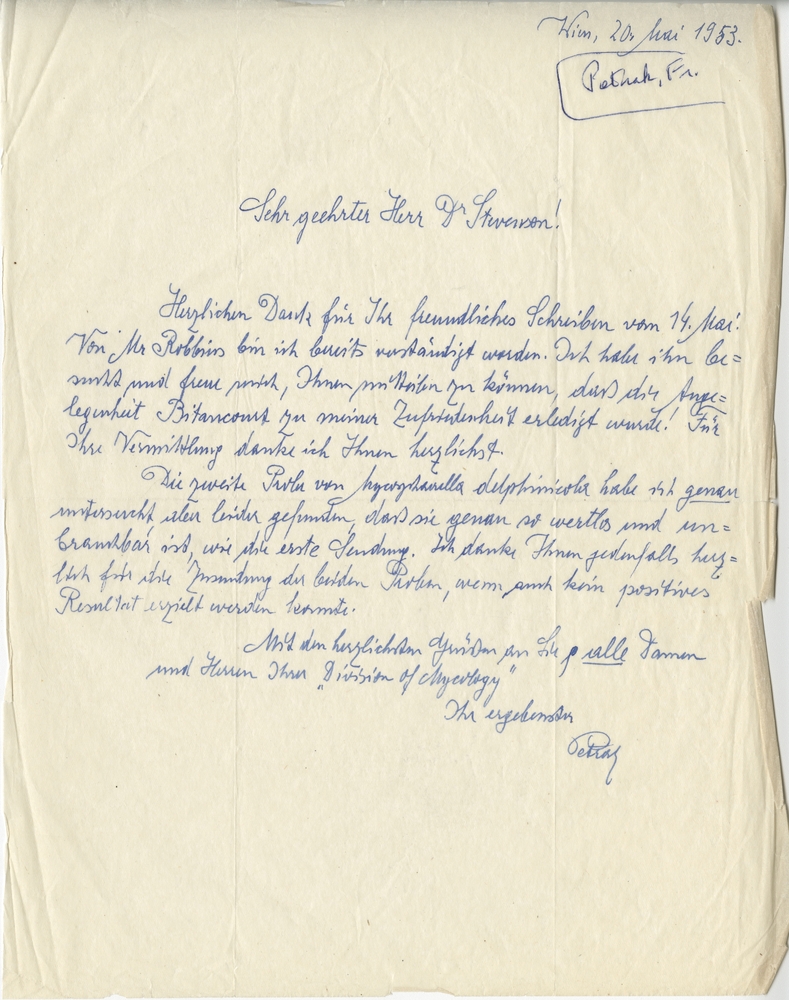 Wien, 20. Mai 1953.
Petrak, Fr.
Sehr geehrter Herr Dr Stevenson!
Herzlichen Dank für Ihr freundliches Schreiben vom 14. Mai!
Von Mr Robbins bin ich bereits verständigt worden. Ich habe ihn be=
sucht und freue mich, Ihnen mitteilen zu können, dass die Ange=
legenheit Bitancourt zu meiner Zufriedenheit erledigt wurde! Für
Ihre Vermittlung danke ich Ihnen herzlichst.
Die zweite Probe von delphinicola habe ich genau
untersucht aber leider gefunden, dass sie genau so wertlos und un=
brauchbar ist, wie die erste Sendung. Ich danke Ihnen jedenfalls herz=
lich für die Zusendung der beiden Proben, wenn auch kein positives
Resultat erzielt werden konnte.
Mit den herzlichsten Grüßen an Sie alle Damen
und Herren Ihrer „Division of Mycology"
Ihr ergebenster
Petrak